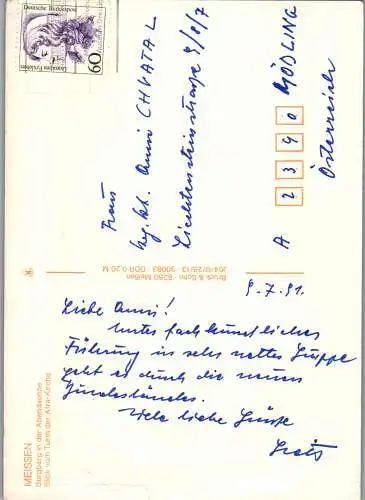 MEISSEN
Burgberg in der Abendsonne
Blick vom Turm der Afra-Kirche
9.7.91.
Liebe Anni!
Unter fachkundlicher
Führung in sehr netter Gruppe
geht es durch die neuen
Bundesländer.
Viele liebe Grüße
Bruck & Sohn · 8250 Meißen
J04/8/28/13 · 30083 · DDR 0,20 M
Deutsche Bundespost
60
Frau
Anni CHVATAL
Liechtensteinstraße 9/8/7
A 2340 MÖDLING
Österreich